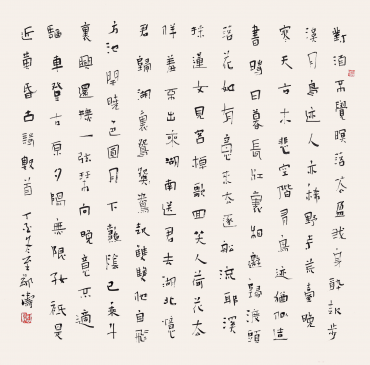 對酒不覺暝落花盈我衣醉起步
溪月鳥還人亦稀野寺荒臺晚
寒天古木悲空階有鳥迹猶似造
書時日暮長江裏相邀歸渡頭
落花如有意來去逐船流耶溪
採蓮女見客棹歌回笑入荷花去
佯羞不出來湖南送君去湖北憶
君歸湖裏鴛鴦鳥雙雙他自飛
方池開曉色圓月下龝陰已乘千
裏興還撫一弦琴向晚意不適
驅車登古原夕陽無限好祇是
近黃昏古詩數首